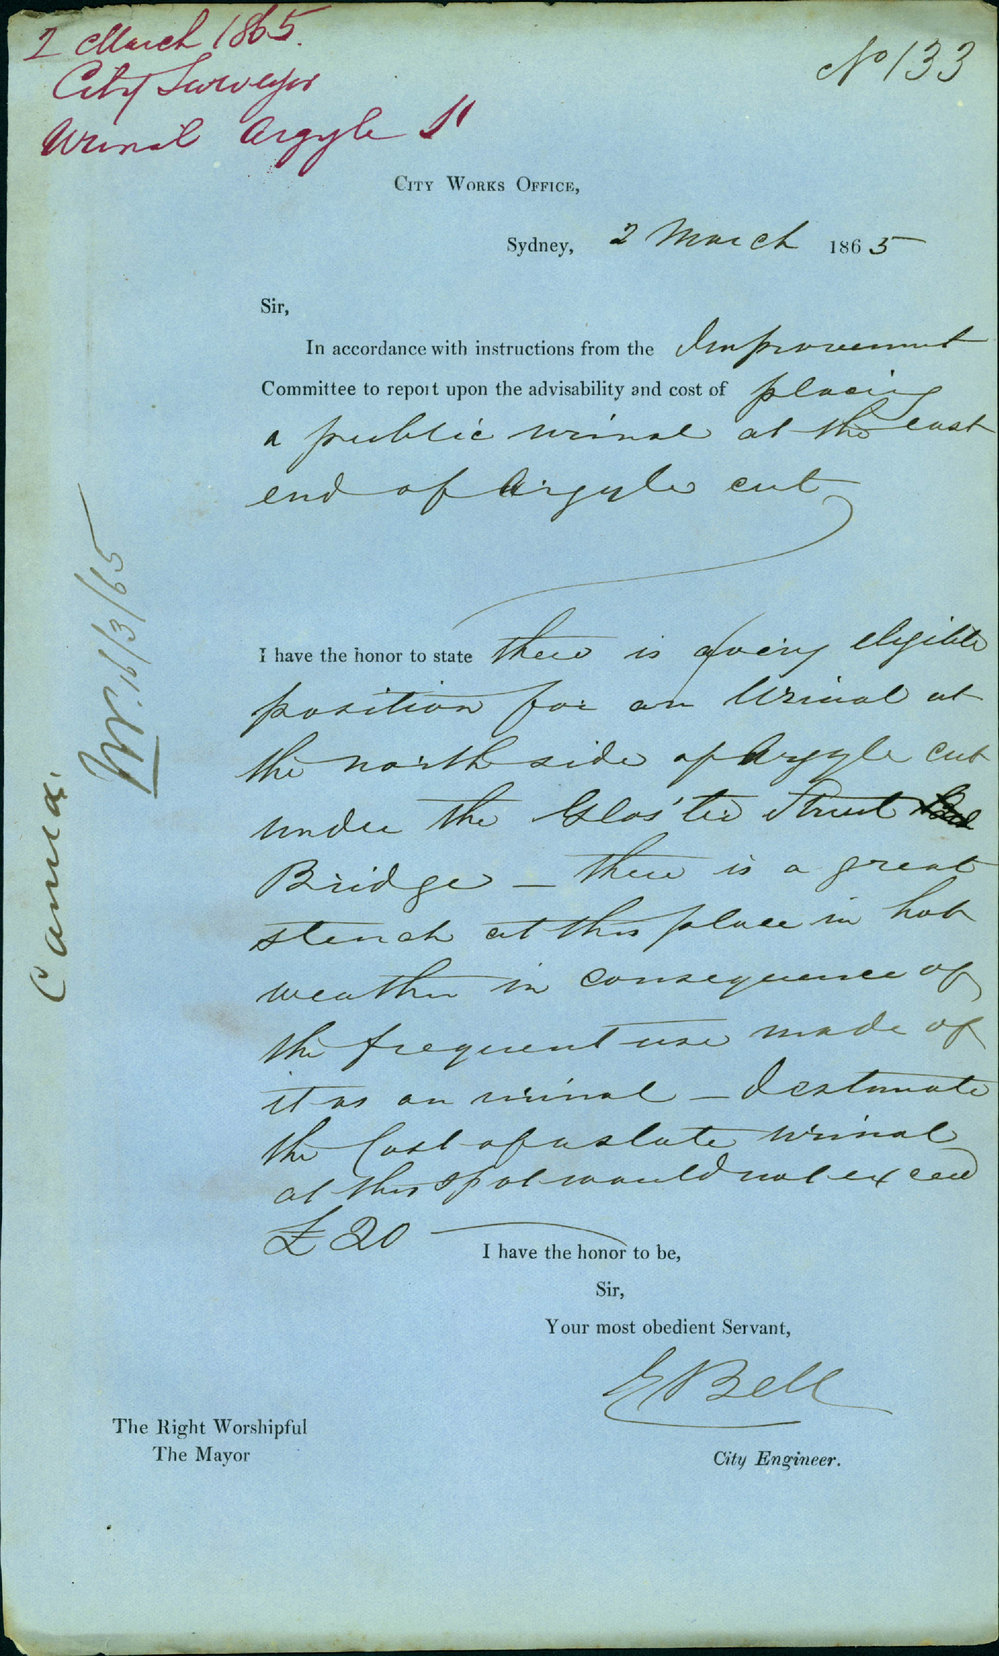 2 March 1865.
City Surveyor
Urinal Argyle St
No 133
City Works Office,
Sydney, 2 March 1865
Sir,
In accordance with instructions from the Improvement
Committee to report upon the advisability and cost of placing
a public urinal at the east
end of Argyle cut
I have the honor to state there is a very eligible
position for an Urinal at
the north side of Argyle cut
under the Glos'ter Street
Bridge – there is a great
stench at this place in hot
weather in consequence of
the frequent use made of
it as an urinal – I estimate
the Cost of a slate urinal
at this spot would not exceed
£20
I have the honor to be,
Sir,
Your most obedient Servant,
E Bell
City Engineer.
The Right Worshipful
The Mayor
16/3/65